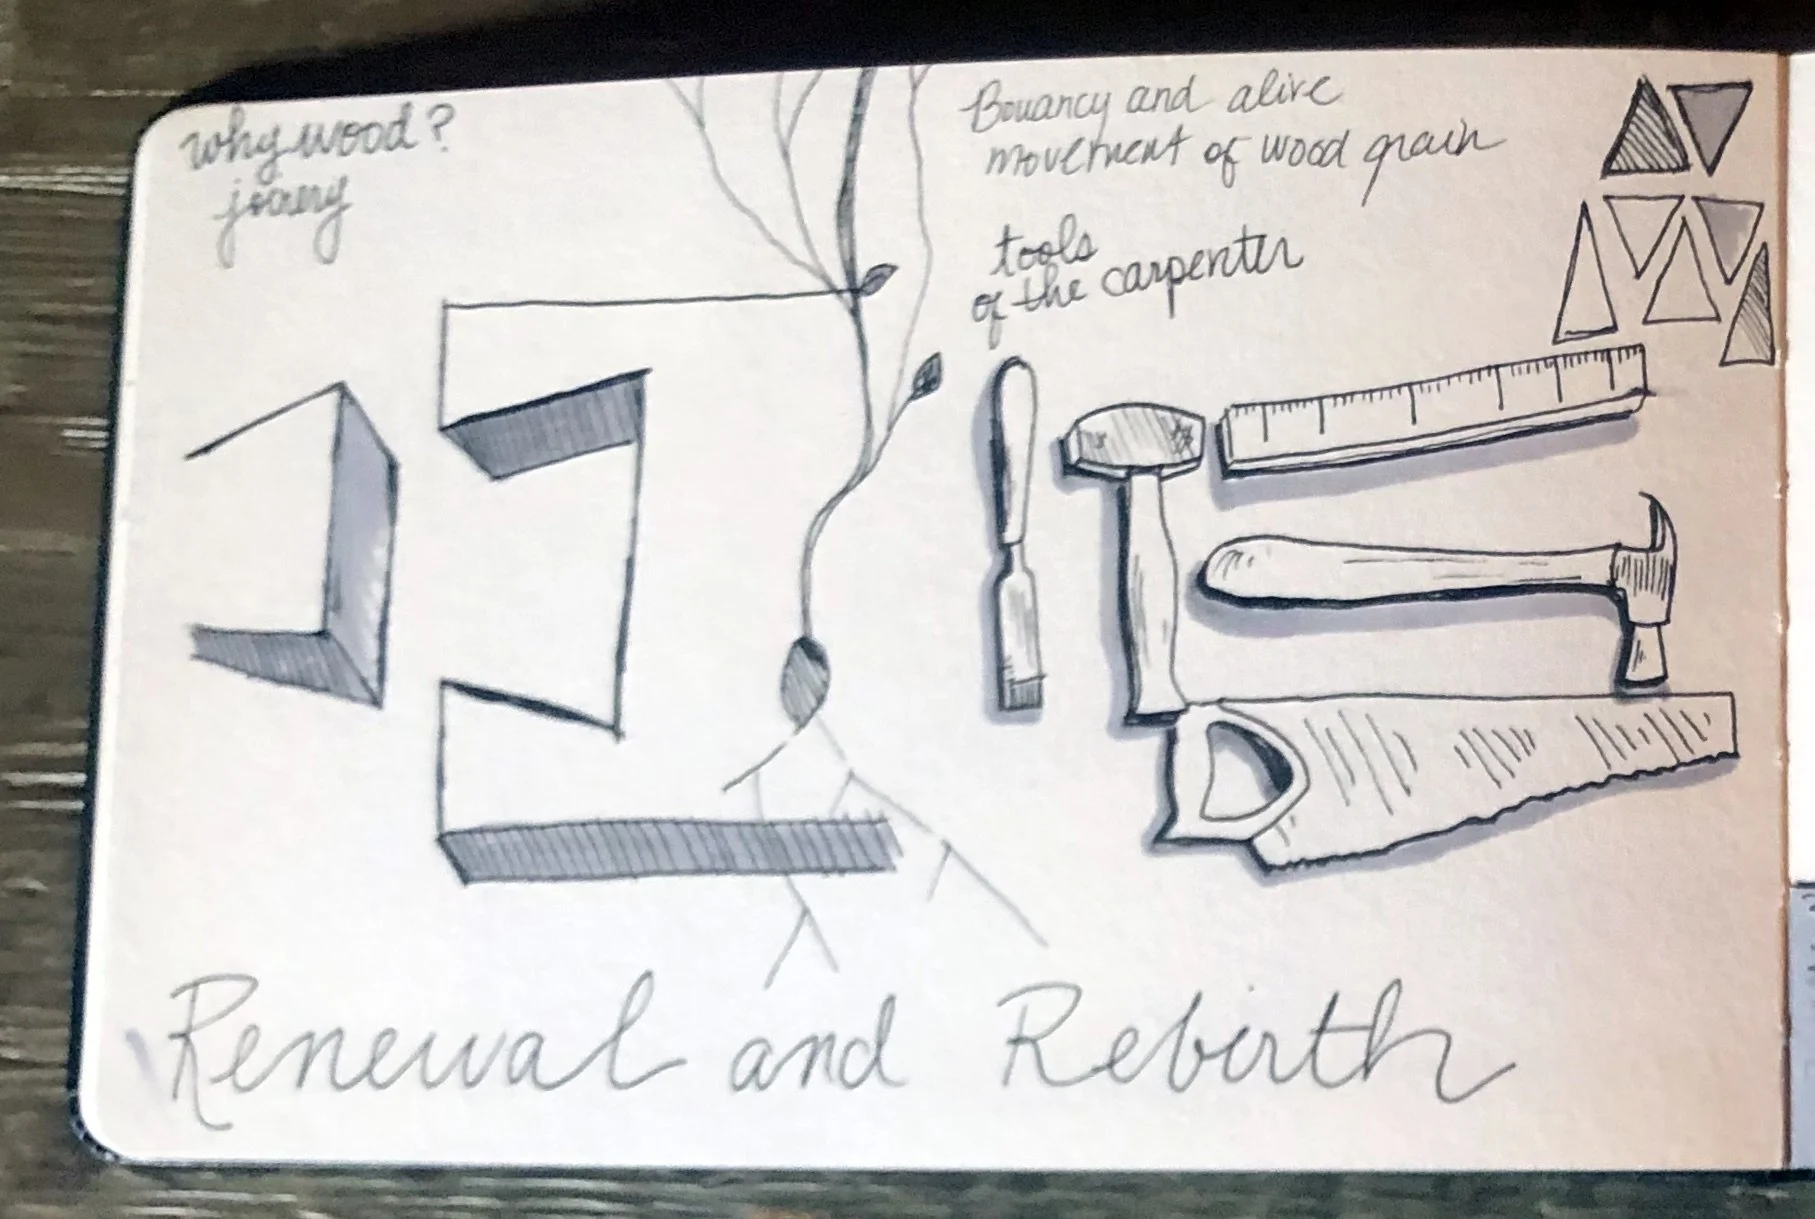 why wood?
joinery
Bouancy and alive
movement of wood grain
tools
of the carpenter
Renewal and Rebirth